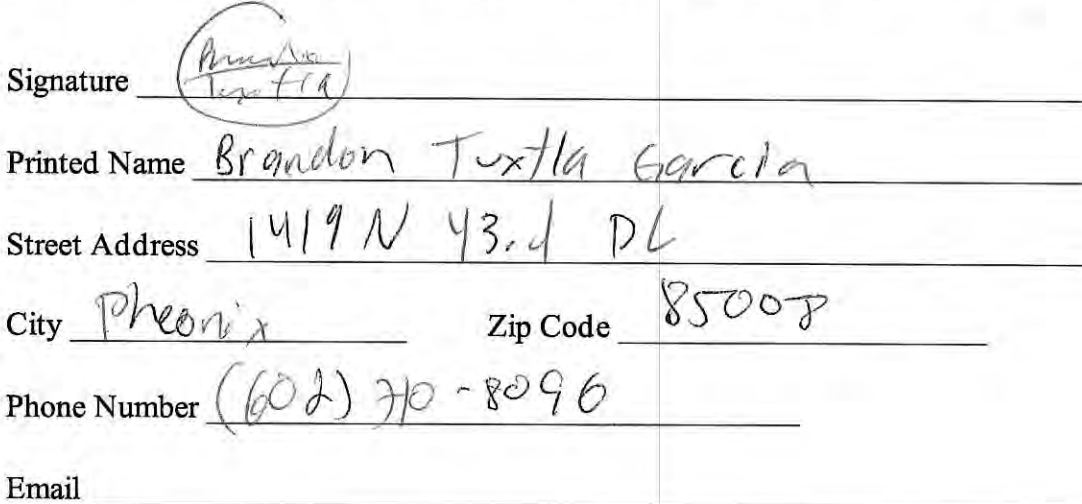 Signature Tuxtla
Printed Name Brandon Tuxtla Garcia
Street Address 1419 N 43rd PL
City Pheonix Zip Code 85008
Phone Number (602) 710-8096
Email